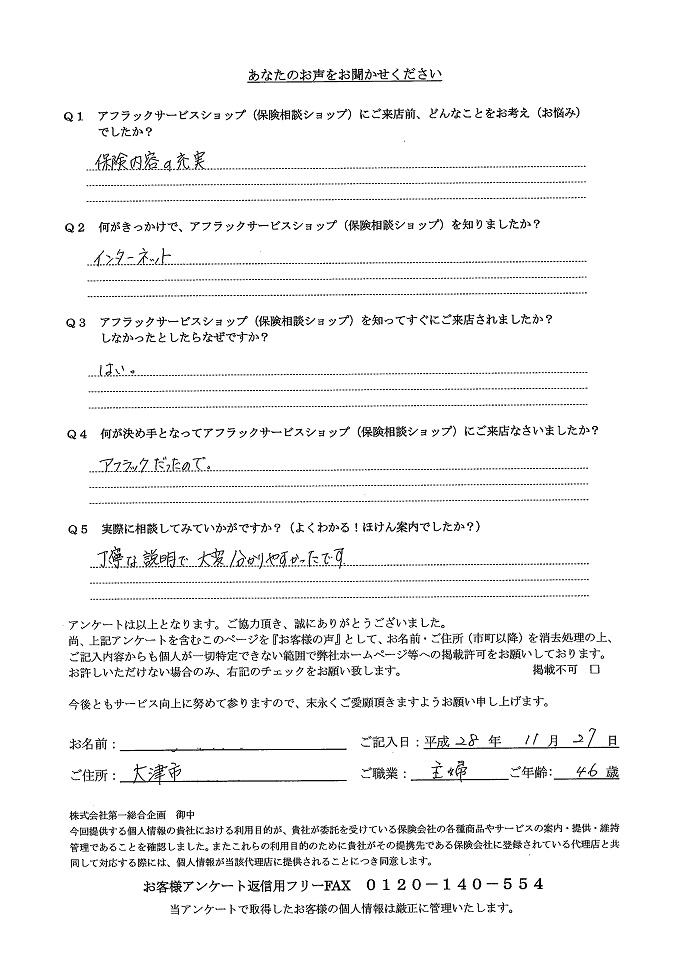 あなたのお声をお聞かせください
Q1 アフラックサービスショップ（保険相談ショップ）にご来店前、どんなことをお考え（お悩み）
でしたか？
保険内容の充実
Q2 何がきっかけで、アフラックサービスショップ（保険相談ショップ）を知りましたか？
インターネット
Q3 アフラックサービスショップ（保険相談ショップ）を知ってすぐにご来店されましたか？
しなかったとしたらなぜですか？
はい。
Q4 何が決め手となってアフラックサービスショップ（保険相談ショップ）にご来店なさいましたか？
アフラックだったので。
Q5 実際に相談してみていかがですか？（よくわかる！ほけん案内でしたか？）
丁寧な説明で大変分かりやすかったです
アンケートは以上となります。ご協力頂き、誠にありがとうございました。
尚、上記アンケートを含むこのページを『お客様の声』として、お名前・ご住所（市町以降）を消去処理の上、
ご記入内容からも個人が一切特定できない範囲で弊社ホームページ等への掲載許可をお願いしております。
お許しいただけない場合のみ、右記のチェックをお願い致します。 掲載不可 □
今後ともサービス向上に努めて参りますので、末永くご愛顧頂きますようお願い申し上げます。
お名前： ご記入日：平成 28 年 11 月 27 日
ご住所： 大津市 ご職業： 主婦 ご年齢： 46 歳
株式会社第一総合企画 御中
今回提供する個人情報の貴社における利用目的が、貴社が委託を受けている保険会社の各種商品やサービスの案内・提供・維持
管理であることを確認しました。またこれらの利用目的のために貴社がその提携先である保険会社に登録されている代理店と共
同して対応する際には、個人情報が当該代理店に提供されることにつき同意します。
お客様アンケート返信用フリーFAX 0120－140－554
当アンケートで取得したお客様の個人情報は厳正に管理いたします。